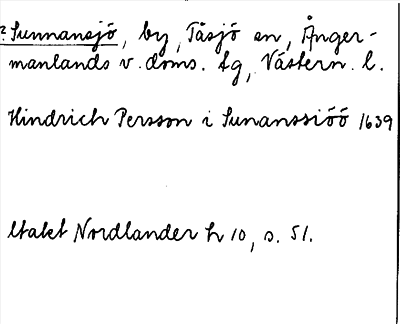 ? Sunnansjö, by, Tåsjö sn, Ånger-
manlands v. doms. tg, Västern. l.
Hindrich Persson i Sunanssiöö 1639
Utakt Nordlander h 10, s. 51.